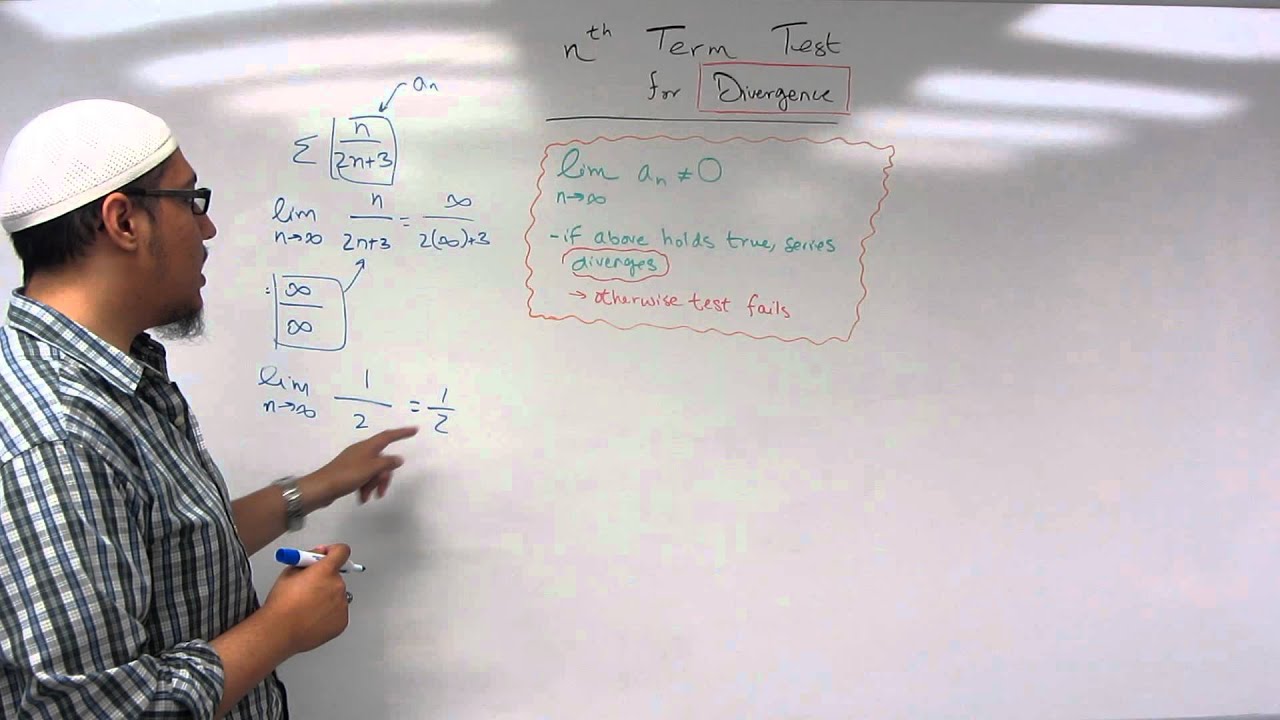 nth Term Test
for Divergence
an
Σ n/(2n+3)
lim n→∞ n/(2n+3) = ∞/(2(∞)+3)
= ∞/∞
lim n→∞ 1/2 = 1/2
lim an ≠ 0
n→∞
- if above holds true, series
diverges
→ otherwise test fails